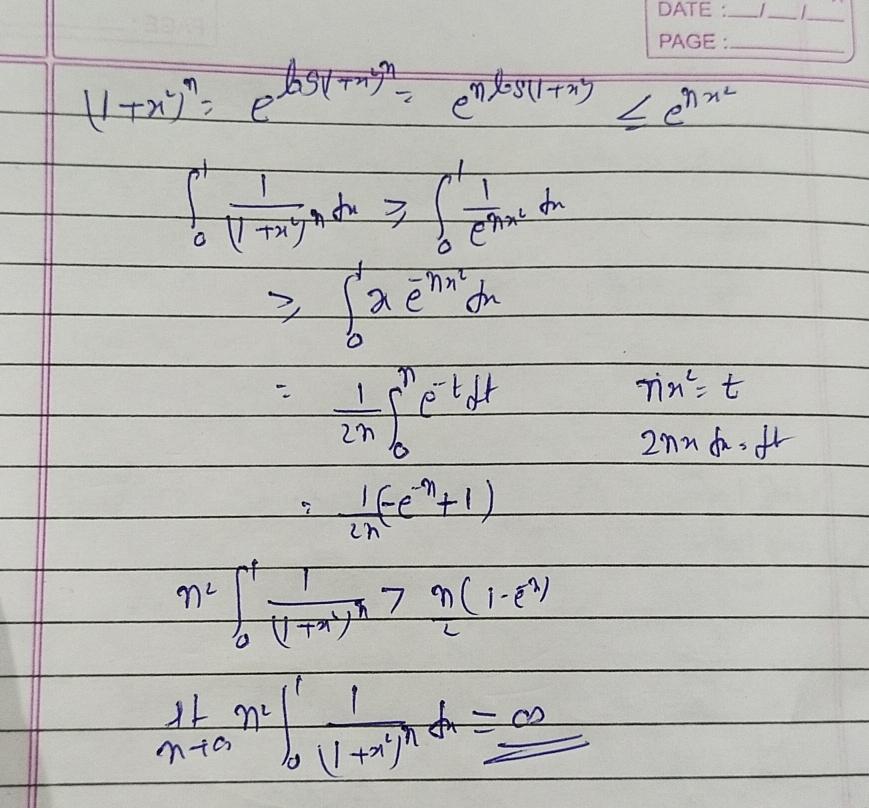 DATE : __/__/__
PAGE :
(1+x²)ⁿ = e^{log(1+x²)ⁿ} = e^{n log(1+x²)} ≤ e^{nx²}
∫₀¹ 1/(1+x²)ⁿ dx ≥ ∫₀¹ 1/e^{nx²} dx
≥ ∫₀¹ x e^{-nx²} dx
= 1/2n ∫₀ⁿ e^{-t} dt nx² = t
2nx dx = dt
= 1/2n (-e^{-n}+1)
n² ∫₀¹ 1/(1+x²)ⁿ > n/2 (1-e^{-n})
lt n→∞ n² ∫₀¹ 1/(1+x²)ⁿ dx = ∞